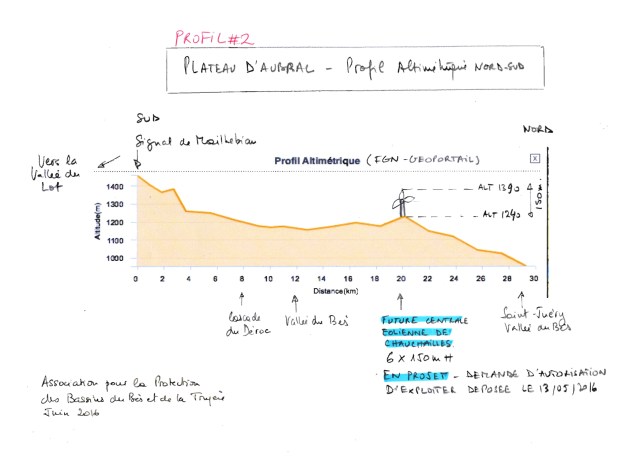 PROFIL #2
PLATEAU D'AUBRAC - Profil Altimétrique NORD-SUD
SUD
NORD
Signal de Mailhebiau
Vers la
Vallée du
Lot
Profil Altimétrique (IGN-GEOPORTAIL)
x
1400
1300
1200
1100
1000
Altitude(m)
ALT 1390
ALT 1240
150m
0 2 4 6 8 10 12 14 16 18 20 22 24 26 28 30
Distance(km)
Cascade
du Déroc
Vallée du Bès
FUTURE CENTRALE
EOLIENNE DE
CHAUCHAILLES
6 x 150 m H
EN PROJET - DEMANDE D'AUTORISATION
D'EXPLOITER DEPOSEE LE 13/05/2016
Saint-Juéry
Vallée du Bès
Association pour la Protection
des Bassins du Bès et de la Truyère
Juin 2016